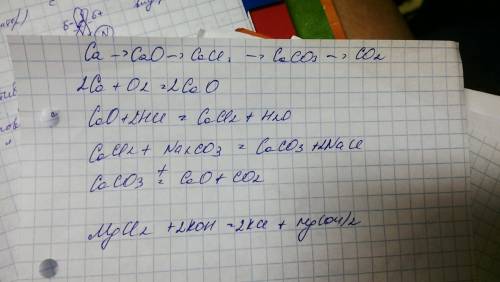 Ca → CaO → CaCl₂ → CaCO3 → CO2
2Ca + O2 = 2CaO
CaO + 2HCl = CaCl2 + H2O
CaCl2 + Na2CO3 = CaCO3 + 2NaCl
CaCO3 t= CaO + CO2
MgCl2 + 2KOH = 2KCl + Mg(OH)2